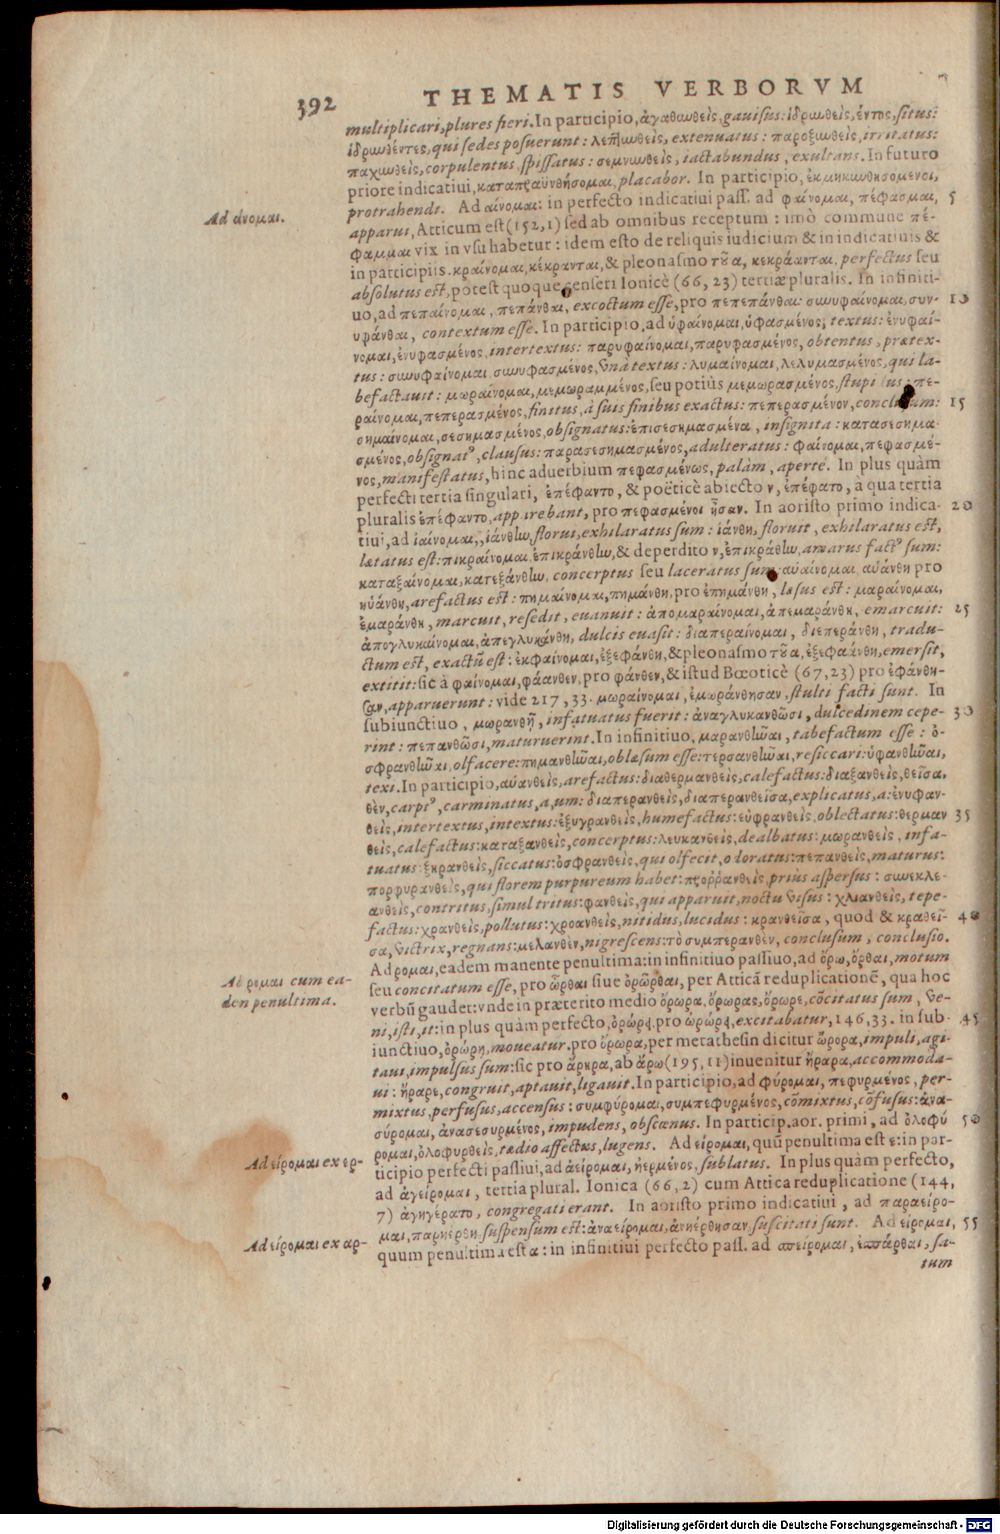 392 THEMATIS VERBORVM
multiplicari, plures fieri. In participio, ἀγαθωθεὶς, gauisus: ἱδρωθεὶς, έντος, situs:
ἱδρωθέντες, qui sedes posuerunt: λεπτωθεὶς, extenuatus: παροξωθεὶς, irritatus:
παχωθεὶς, corpulentus, spissatus: σεμνωθεὶς, iactabundus, exultans. In futuro
priore indicatiui, καταπραϋνθήσομαι, placabor. In participio, ἐκμηκωθησομενοι,
protrahendi. Ad αίνομαι: in perfecto indicatiui pass. ad φαίνομαι, πέφασμαι, 5
Ad άνομαι.
apparui, Atticum est (152,1) sed ab omnibus receptum: imò commune πέ-
φαμμαι vix in vsu habetur: idem esto de reliquis iudicium & in indicatiuis &
in participiis. κραίνομαι, κέκρανται, & pleonasmo τοῦ α, κεκράανται, perfectus seu
absolutus est, potest quoque censeri Ionicè (66, 23) tertiæ pluralis. In infiniti-
uo, ad πεπαίνομαι, πεπάνθαι, excoctum esse, pro πεπεπάνθαι: σωυφαίνομαι, συν- 10
υφάνθαι, contextum esse. In participio, ad ὑφαίνομαι, ὑφασμένος, textus: ἐνυφαί-
νομαι, ἐνυφασμένος, intertextus: παρυφαίνομαι, παρυφασμένος, obtentus, prætex-
tus: σωυφαίνομαι σωυφασμένος, vnà textus: λυμαίνομαι, λελυμασμένος, qui la-
befactauit: μωραίνομαι, μεμωραμμένος, seu potiùs μεμωρασμένος, stupidus: πε-
ραίνομαι, πεπερασμένος, finitus, à suis finibus exactus: πεπερασμένον, conclusam: 15
σημαίνομαι, σεσημασμένος, obsignatus: ἐπισεσημασμένα, insignita: κατασεσημα-
σμένος, obsignatꝰ, clausus: παρασεσημασμένος, adulteratus: φαίνομαι, πεφασμέ-
νος, manifestatus, hinc aduerbium πεφασμένως, palàm, apertè. In plus quàm
perfecti tertia singulari, ἐπέφαντο, & poëticè abiecto ν, ἐπέφατο, à qua tertia
pluralis ἐπέφαντο, apparebant, pro πεφασμένοι ἦσαν. In aoristo primo indica- 20
tiui, ad ἰαίνομαι, ἰάνθλω, florui, exhilaratus sum: ἰάνθη, floruit, exhilaratus est,
lætatus est: πικραίνομαι ἐπικράνθλω, & deperdito ν, ἐπικράθλω, amarus factꝰ sum:
καταξαίνομαι, κατεξάνθλω, concerptus seu laceratus sum: αὐαίνομαι, αὐάνθη pro
ηὐάνθη, arefactus est: πημαίνομαι, πημάνθη, pro ἐπημάνθη, læsus est: μαραίνομαι,
ἐμαράνθη, marcuit, resedit, euanuit: ἀπομαραίνομαι, ἀπεμαράνθη, emarcuit: 25
ἀπογλυκαίνομαι, ἀπεγλυκάνθη, dulcis euasit: διαπεραίνομαι, διεπεράνθη, tradu-
ctum est, exactū est: ἐκφαίνομαι, ἐξεφάνθη, & pleonasmo τοῦ α, ἐξεφαάνθη, emersit,
extitit: sic à φαίνομαι, φάανθεν, pro φάνθεν, & istud Bœoticè (67, 23) pro ἐφάνθη-
σαν, apparuerunt: vide 217, 33. μωραίνομαι, ἐμωράνθησαν, stulti facti sunt. In
subiunctiuo, μωρανθῇ, infatuatus fuerit: ἀναγλυκανθῶσι, dulcedinem cepe- 30
rint: πεπανθῶσι, maturuerint. In infinitiuo, μαρανθῶαι, tabefactum esse: ὀ-
σφρανθῶαι, olfacere: πημανθῶαι, oblæsum esse: τερσανθῶαι, resiccari: ὑφανθῶαι,
texi. In participio, αὐανθεὶς, arefactus: διαθερμανθεὶς, calefactus: διαξανθεὶς, θεῖσα,
θὲν, carpꝰ, carminatus, a, um: διαπερανθεὶς, διαπερανθεῖσα, explicatus, a: ἐνυφαν-
θεὶς, intertextus, intextus: ἐξυγρανθεὶς, humefactus: εὐφρανθεὶς, oblectatus: θερμαν 35
θεὶς, calefactus: καταξανθεὶς, concerptus: λευκανθεὶς, dealbatus: μωρανθεὶς, infa-
tuatus: ξηρανθεὶς, siccatus: ὀσφρανθεὶς, qui olfecit, odoratus: πεπανθεὶς, maturus:
πορφυρανθεὶς, qui florem purpureum habet: προῤῥανθεὶς, priùs aspersus: σωεκλε-
ανθεὶς, contritus, simul tritus: φανθεὶς, qui apparuit, noctu visus: χλιανθεὶς, tepe-
factus: χρανθεὶς, pollutus: χροανθεὶς, nitidus, lucidus: κρανθεῖσα, quod & κραθεῖ- 40
σα, victrix, regnans: μελανθὲν, nigrescens: τὸ συμπερανθὲν, conclusum, conclusio.
Ad ρομαι, eadem manente penultima: in infinitiuo passiuo, ad ὄρω, ὄρθαι, motum
Ad ρομαι cum ea-
dem penultima.
seu concitatum esse, pro ὦρθαι siue ὀρῶρθαι, per Atticā reduplicationē, qua hoc
verbū gaudet: vnde in præterito medio ὄρωρα, ὄρωρας, ὄρωρε, cōcitatus sum, ve-
ni, isti, it: in plus quàm perfecto, ὀρώρᾳ pro ὠρώρᾳ, excitabatur, 146, 33. in sub- 45
iunctiuo, ὀρώρῃ, moueatur. pro ὄρωρα, per metathesin dicitur ὤρορα, impuli, agi-
taui, impulsus sum: sic pro ἄρηρα, ab ἄρω (195, 11) inuenitur ἤραρα, accommoda-
ui: ἤραρε, congruit, aptauit, ligauit. In participio, ad φύρομαι, πεφυρμένος, per-
mixtus, perfusus, accensus: συμφύρομαι, συμπεφυρμένος, cōmixtus, cōfusus: ἀνα-
σύρομαι, ἀνασεσυρμένος, impudens, obscænus. In particip. aor. primi, ad ὀλοφύ 50
ρομαι, ὀλοφυρθεὶς, tædio affectus, lugens. Ad είρομαι, quū penultima est ε: in par-
Ad είρομαι ex ερ-
ticipio perfecti passiui, ad ἀείρομαι, ἠερμένος, sublatus. In plus quàm perfecto,
ad ἀγείρομαι, tertia plural. Ionica (66, 2) cum Attica reduplicatione (144,
7) ἀγηγέρατο, congregati erant. In aoristo primo indicatiui, ad παραείρο-
μαι, παρηέρθη, suspensum est: ἀναείρομαι, ἀνηέρθησαν, suscitati sunt. Ad είρομαι, 55
Ad είρομαι ex αρ-
quum penultima est α: in infinitiui perfecto pass. ad σπείρομαι, ἐσπάρθαι, sa-
tum
Digitalisierung gefördert durch die Deutsche Forschungsgemeinschaft - DFG